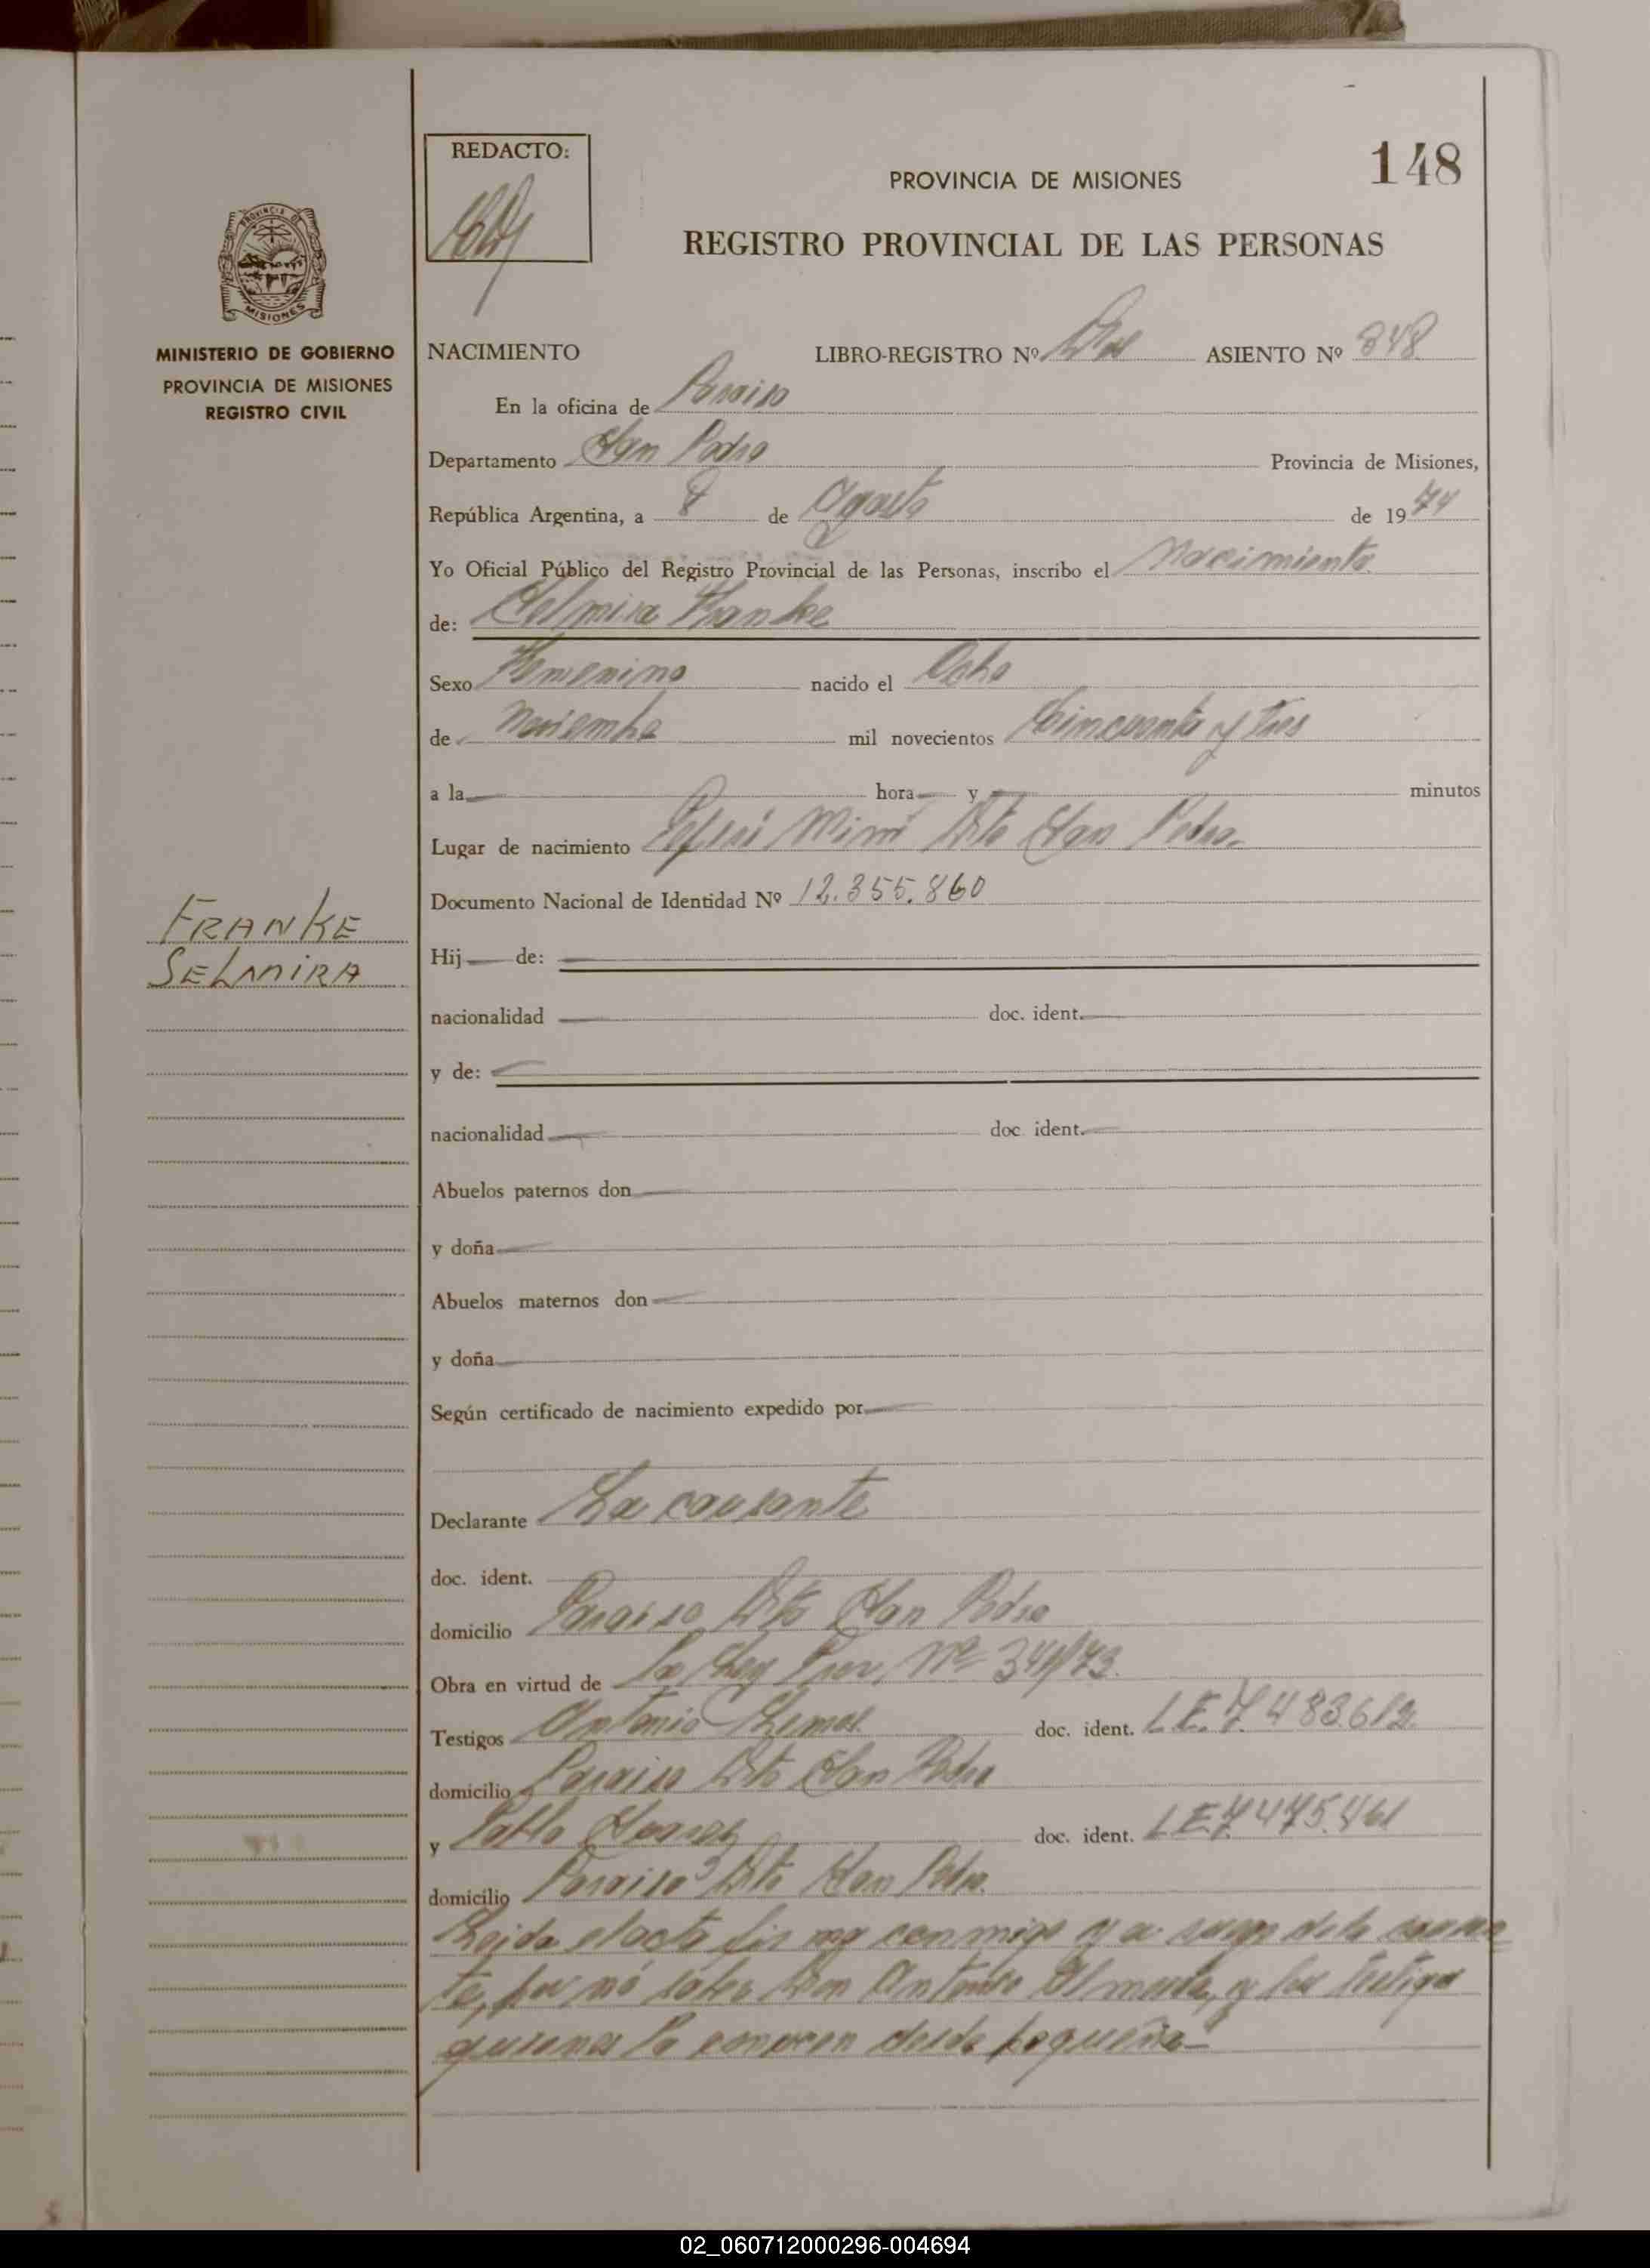 REDACTO:
148
PROVINCIA DE MISIONES
REGISTRO PROVINCIAL DE LAS PERSONAS
PROVINCIA DE
MISIONES
MINISTERIO DE GOBIERNO
PROVINCIA DE MISIONES
REGISTRO CIVIL
NACIMIENTO LIBRO-REGISTRO Nº Dos ASIENTO Nº 348
En la oficina de Paraiso
Departamento San Pedro Provincia de Misiones,
República Argentina, a 8 de Agosto de 1974
Yo Oficial Público del Registro Provincial de las Personas, inscribo el Nacimiento
de: Selmira Franke
Sexo Femenino nacido el Ocho
de Noviembre mil novecientos Cincuenta y tres
a la hora y minutos
Lugar de nacimiento Miní Dto San Pedro
Documento Nacional de Identidad Nº 12.355.860
FRANKE
SELMIRA
Hij de:
nacionalidad doc. ident.
y de:
nacionalidad doc. ident.
Abuelos paternos don
y doña
Abuelos maternos don
y doña
Según certificado de nacimiento expedido por
Declarante La causante
doc. ident.
domicilio Paraiso Dto San Pedro
Obra en virtud de La Ley Prov. Nº 341/73.
Testigos Antonio doc. ident. L.E. 7.483.612
domicilio Paraiso Dto San Pedro
y Pablo doc. ident. L.E. 7.475.461
domicilio Paraiso Dto San Pedro.
Leida el acta conmigo y a ruego de la causan
te, por nó saber Don Antonio y los testigos
quienes la conocen desde pequeña
02_060712000296-004694